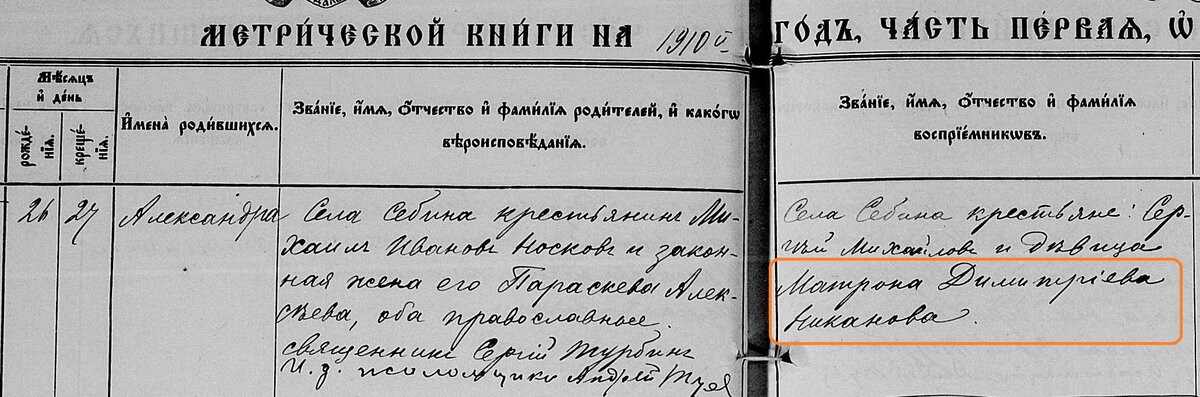 МЕТРИ́ЧЕСКОЙ КНИ́ГИ НА 1910й ГО́ДЪ, ЧА́СТЬ ПЕ́РВАЯ, Ѡ
Мѣ́сяцъ
и҆ де́нь
рожде́-
нїѧ.
креще́-
нїѧ.
И҆мена̀ роди́вшихсѧ.
Зва́нїе, и҆́мѧ, ѻ҆́тчество и҆ фами́лїѧ роди́телей, и҆ како́гѡ
вѣроисповѣ́данїѧ.
Зва́нїе, и҆́мѧ, ѻ҆́тчество и҆ фами́лїѧ
воспрїе́мникѡвъ.
26
27
Александра
Села Себина крестьянинъ Ми-
хаилъ Ивановъ Носковъ и закон-
ная жена его Параскева Алек-
сѣева, оба православные.
священникъ Сергій Турбинъ
И. д. псаломщика Андрей
Села Себина крестьяне: Сер-
гѣй Михайловъ и дѣвица
Матрона Димитріева
Никанова.